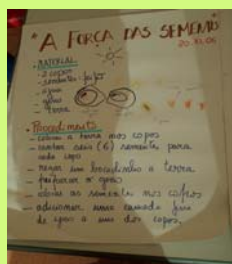 "A FORÇA DAS SEMENTES"
20.10.06
• MATERIAL
- 2 copos
- sementes feijão
- água
- gesso
- terra
• Procedimento
- colocar a terra nos copos
- contar seis (6) sementes para
cada copo
- regar um bocadinho a terra
- preparar o gesso
- colocar as sementes nos copos
- adicionar uma camada fina
de gesso a um dos copos.